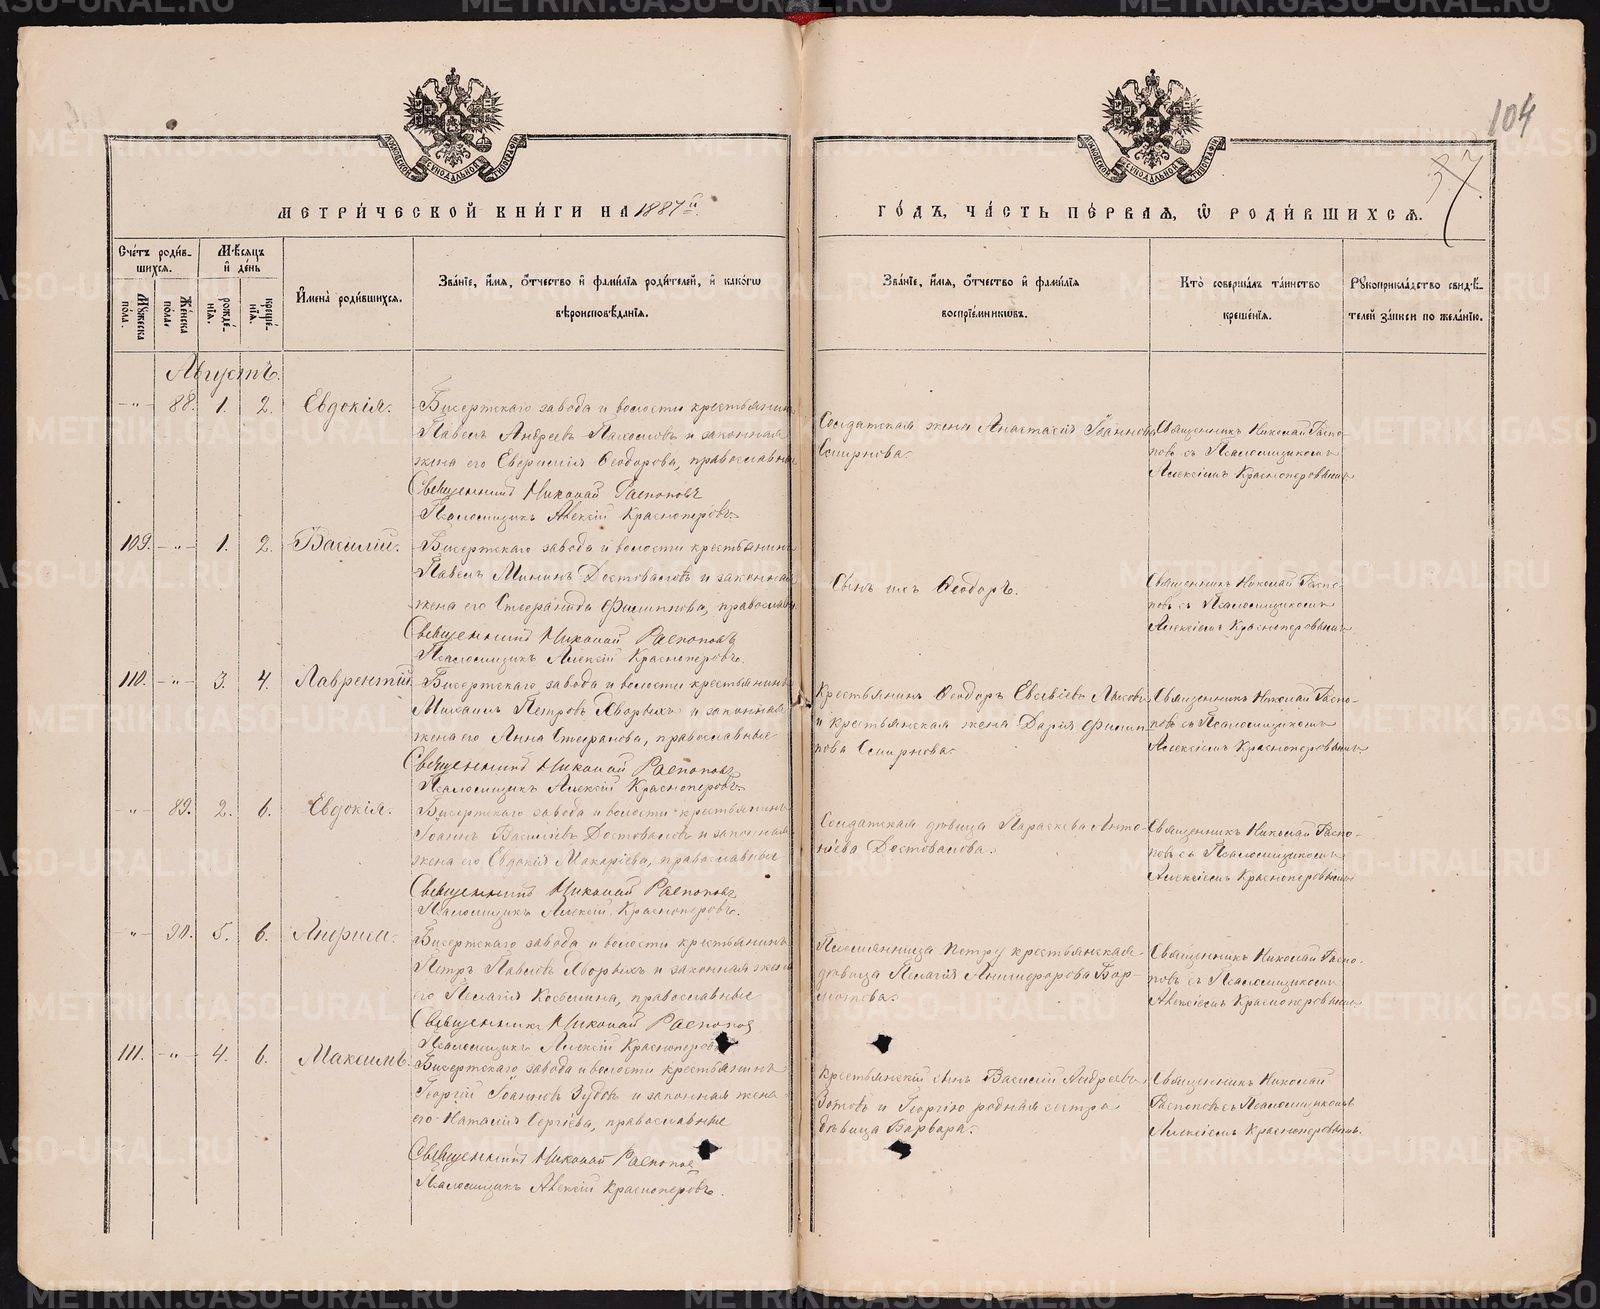 104
МЕТРИ́ЧЕСКОЙ КНИ́ГИ НА 1887й
ГО́ДЪ, ЧА́СТЬ ПЕ́РВАѦ, Ѿ РОДИ́ВШИХСѦ.
Сче́тъ роди́вшихсѧ.
Мꙋ́жеска по́ла.
Же́нска по́ла.
Мѣ́сѧцъ и҆ де́нь
рожде́нїѧ.
креще́нїѧ.
И҆мена̀ роди́вшихсѧ.
Зва́нїе, и҆́мѧ, ѻ҆́тчество и҆ фами́лїѧ роди́телей, и҆ како́гѡ
вѣроисповѣ́данїѧ.
Зва́нїе, и҆́мѧ, ѻ҆́тчество и҆ фами́лїѧ
воспрїе́мникѡвъ.
Кто̀ соверша́лъ та́инство
креще́нїѧ.
Рꙋкоприкла́дство свидѣ́-
телей за́писи по жела́нїю.
Августъ.
-"- 88. 1. 2. Евдокія.
Бисертскаго завода и волости крестьянинъ
Павелъ Андреевъ и законная
жена его Евфимія Ѳеодорова, православные
Священникъ Николай Распоповъ
Псаломщикъ Алексій Красноперовъ.
Солдатская жена Анастасія Іоаннова
Смирнова.
Священникъ Николай Распо-
повъ съ Псаломщикомъ
Алексіемъ Красноперовымъ
109. -"- 1. 2. Василій.
Бисертскаго завода и волости крестьянинъ
Павелъ Мининъ Достоваловъ и законная
жена его Стефанида Филиппова, православные
Священникъ Николай Распоповъ
Псаломщикъ Алексій Красноперовъ.
Сынъ ихъ Ѳеодоръ.
Священникъ Николай Распо-
повъ съ Псаломщикомъ
Алексіемъ Красноперовымъ
110. -"- 3. 4. Лаврентій.
Бисертскаго завода и волости крестьянинъ
Михаилъ Петровъ Яворыхъ и законная
жена его Анна Стефанова, православные
Священникъ Николай Распоповъ
Псаломщикъ Алексій Красноперовъ.
Крестьянинъ Ѳеодоръ
и крестьянская жена Дарія Филип-
пова Смирнова.
Священникъ Николай Распо-
повъ съ Псаломщикомъ
Алексіемъ Красноперовымъ
-"- 89. 2. 6. Евдокія.
Бисертскаго завода и волости крестьянинъ
Іоаннъ Васильевъ Достоваловъ и законная
жена его Евдокія Макаріева, православные
Священникъ Николай Распоповъ
Псаломщикъ Алексій Красноперовъ.
Солдатская дѣвица Параскева Анто-
ніева Достовалова.
Священникъ Николай Распо-
повъ съ Псаломщикомъ
Алексіемъ Красноперовымъ
-"- 90. 5. 6.
Бисертскаго завода и волости крестьянинъ
Петръ Павловъ Яворыхъ и законная жена
его Пелагія, православные
Священникъ Николай Распоповъ
Псаломщикъ Алексій Красноперовъ
Племянница Петру крестьянская
дѣвица Пелагія
Священникъ Николай Распо-
повъ съ Псаломщикомъ
Алексіемъ Красноперовымъ
111. -"- 4. 6. Максимъ.
Бисертскаго завода и волости крестьянинъ
Георгій Іоанновъ Зубовъ и законная жена
его Наталія Сергіева, православные
Священникъ Николай Распоповъ
Псаломщикъ Алексій Красноперовъ.
Крестьянскій сынъ Василій Андреевъ
Зотовъ и Георгію родная сестра
дѣвица Варвара.
Священникъ Николай
Распоповъ съ Псаломщикомъ
Алексіемъ Красноперовымъ.
METRIKI.GASO-URAL.RU